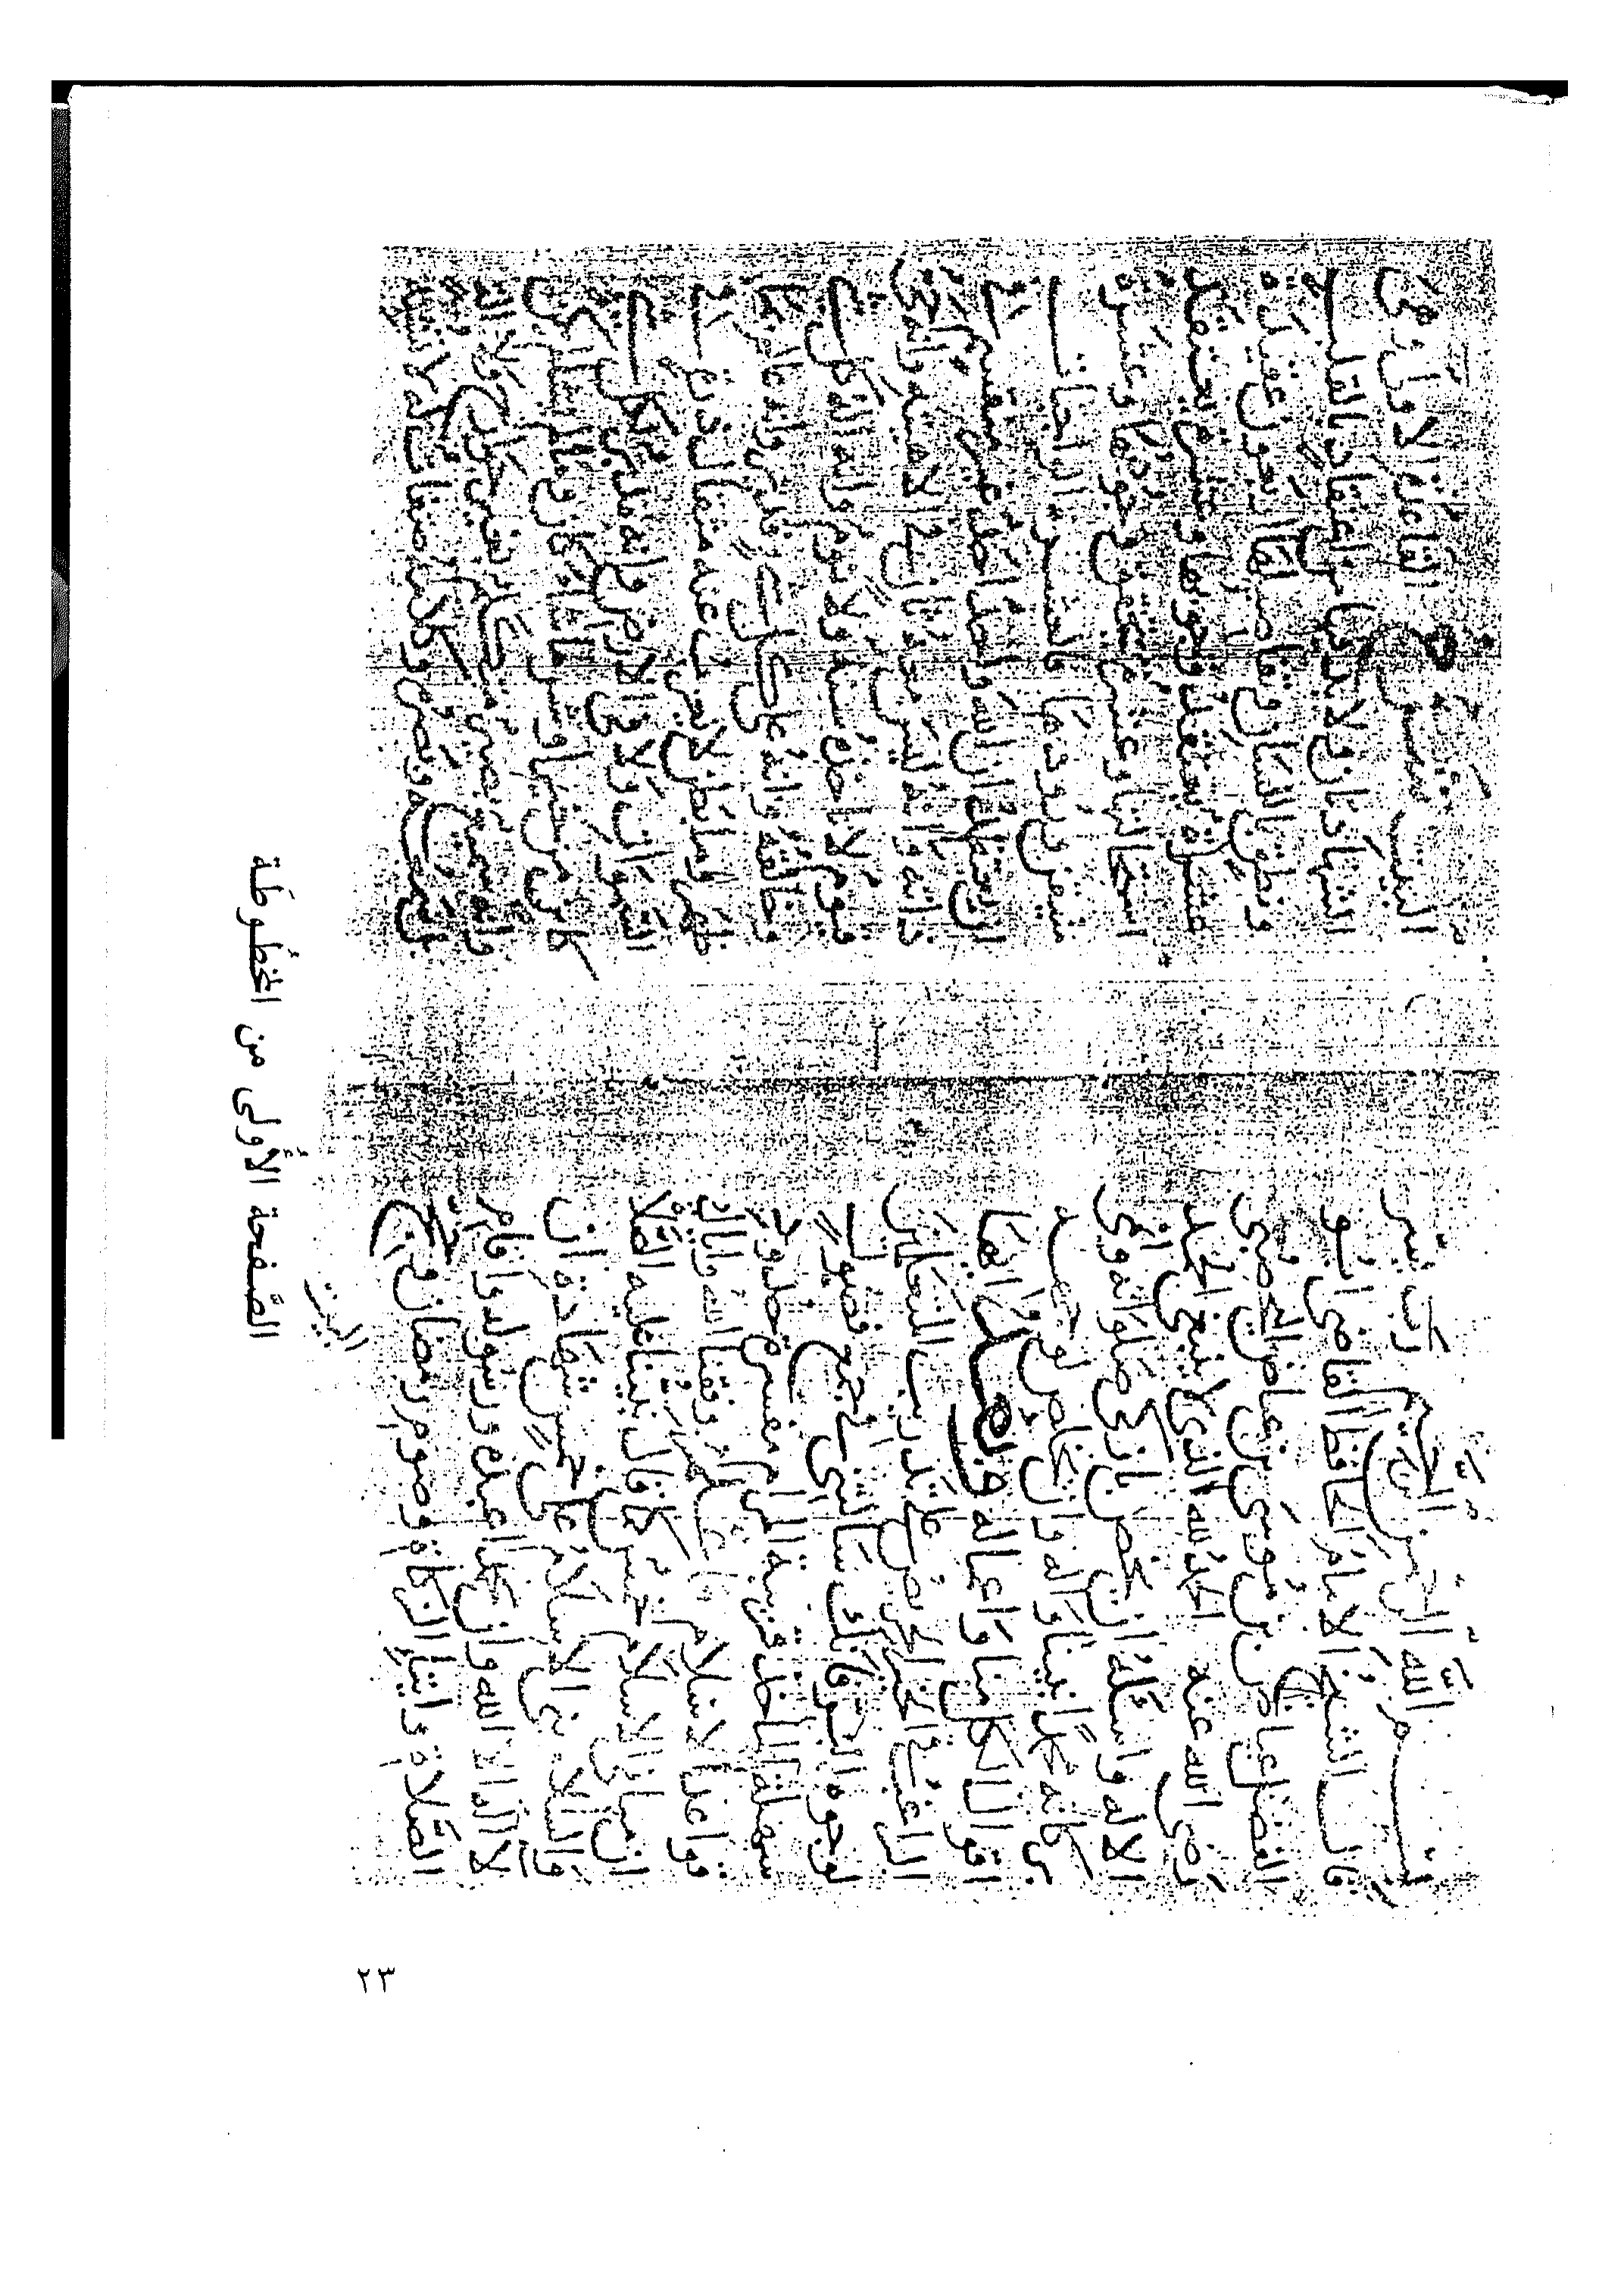 بسم الله الرحمن الرحيم رب يسر
قال الشيخ الامام الحافظ القاضي ابو
الفضل عياض بن موسى بن عياض اليحصبي
رضي الله عنه الحمد لله الذي لا ينبغي الحمد
الا له واسأله ان يخص بازكى صلواته وانمى
بركاته محمدا نبينا وآله وان يخلص لوجهه
اقوالنا واعمالنا ايها
الراغب في الخير الحريص على تدريب المتعلمين
لوجوه البر فانك سألتني في جمع فصول
سهلة المأخذ قريبة المرام مفسرة حدود
قواعد الاسلام فاعلم وفقنا الله واياك
ان مباني الاسلام خمس كما قال نبينا عليه الصلاة
والسلام بني الاسلام على خمس شهادة ان
لا اله الا الله وان محمدا عبده ورسوله واقام
الصلاة وايتاء الزكاة وصوم رمضان وحج
البيت
البيت شرح القاعدة الاولى وهي
الشهادتان ولا بد من اعتقاد بالقلب
ونطق باللسان وتفاصيلها اربعون عقيدة
عشرة يعتقد وجوبها وعشر يعتقد
استحالتها وعشر يتحقق وجودها وعشر
متيقن ورودها فالعشر الواجبات
ان يعتقد ان الله واحد غير منقسم في
ذاته وانه ليس معه ثان في الاهيته وانه حي
قيوم لا تاخذه سنة ولا نوم وانه اله كل شيء
وخالقه وانه على كل شيء قدير وانه عالم بما
ظهر وما بطن لا يعزب عنه مثقال ذرة في
السموات ولا في الارض وانه مريد لكل
كائن من خير او شر ما شاء كان وما لم يشأ لم يكن
وانه سميع بصير متكلم بغير جارحة ولا آلة
بل سمعه وبصره وكلامه صفات له لا تشبه
الصّفحة الأولى من المخطُوطَة
٢٣